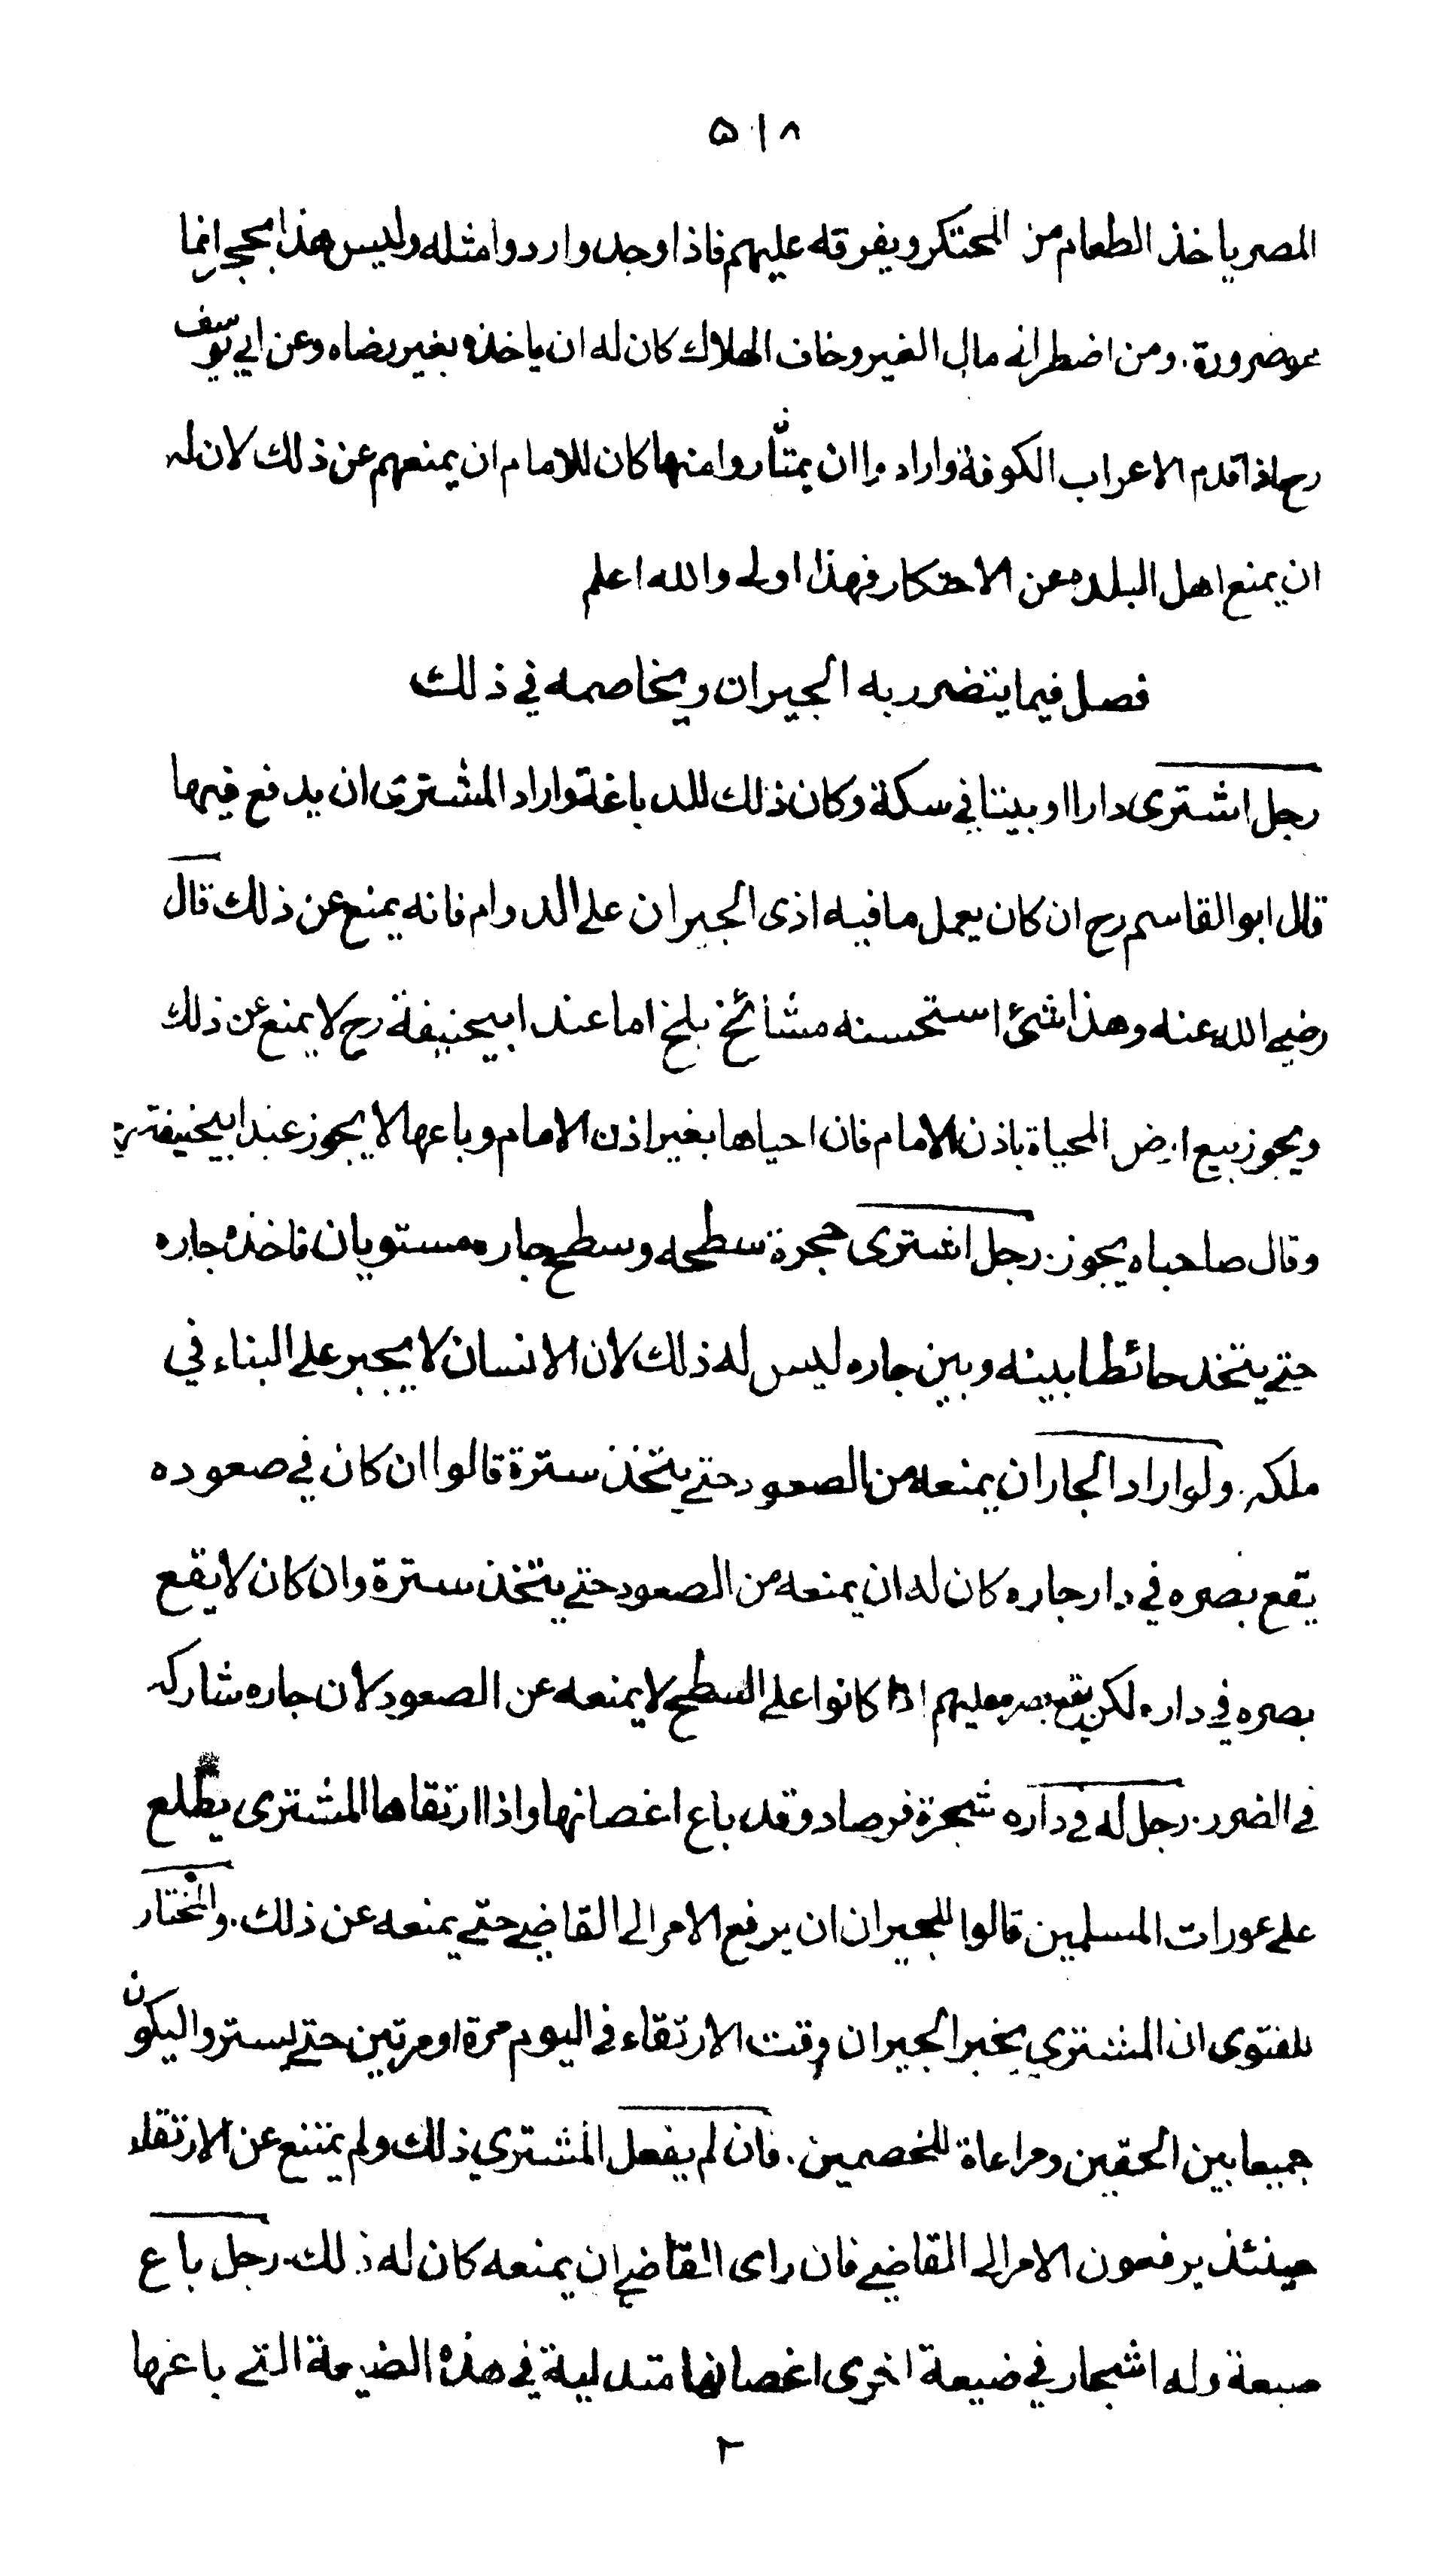 ٥١٨
المصر ياخذ الطعام من المحتكر ويفرقه عليهم فاذا وجدوا ردوا مثله وليس هذا بحجر انما
هو ضرورة. ومن اضطر الى مال الغير وخاف الهلاك كان له ان ياخذه بغير رضاه وعن ابي يوسف
رح اذا قدم الاعراب الكوفة وارادوا ان يمتاروا منها كان للامام ان يمنعهم عن ذلك لان له
ان يمنع اهل البلدة عن الاحتكار فهذا اولى والله اعلم
فصل فيما يتضرر به الجيران ويخاصمه في ذلك
رجل اشترى دارا او بيتا في سكة وكان ذلك للدباغة واراد المشترى ان يدفع فيها
قال ابو القاسم رح ان كان يعمل ما فيه اذى الجيران على الدوام فانه يمنع عن ذلك قال
رضي الله عنه وهذا شئ استحسنه مشائخ بلخ اما عند ابيحنيفة رح لا يمنع عن ذلك
ويجوز بيع ارض المحياة باذن الامام فان احياها بغير اذن الامام وباعها لا يجوز عند ابيحنيفة رح
وقال صاحباه يجوز. رجل اشترى حجرة سطحه وسطح جاره مستويان فاخذه جاره
حتى يتخذ حائطا بينه وبين جاره ليس له ذلك لان الانسان لا يجبر على البناء في
ملكه. ولو اراد الجار ان يمنعه من الصعود حتى يتخذ سترة قالوا ان كان في صعوده
يقع بصره في دار جاره كان له ان يمنعه من الصعود حتى يتخذ سترة وان كان لا يقع
بصره في داره لكن يقع بصره عليهم اذا كانوا على السطح لا يمنعه عن الصعود لان جاره شاركه
في الضرر. رجل له في داره شجرة فرصاد وقد باع اغصانها واذا ارتقاها المشترى يطلع
على عورات المسلمين قالوا للجيران ان يرفع الامر الى القاضي حتى يمنعه عن ذلك. والمختار
للفتوى ان المشتري يخبر الجيران وقت الارتقاء في اليوم مرة او مرتين حتى يستروا ليكون
جميعا بين الحقين ومراعاة للخصمين. فان لم يفعل المشتري ذلك ولم يمتنع عن الارتقاء
حينئذ يرفعون الامر الى القاضي فان راى القاضي ان يمنعه كان له ذلك. رجل باع
ضيعة وله اشجار في ضيعة اخرى اغصانها متدلية في هذه الضيعة التي باعها
٢